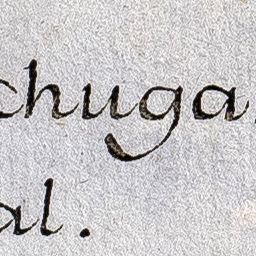 chuga.
al.